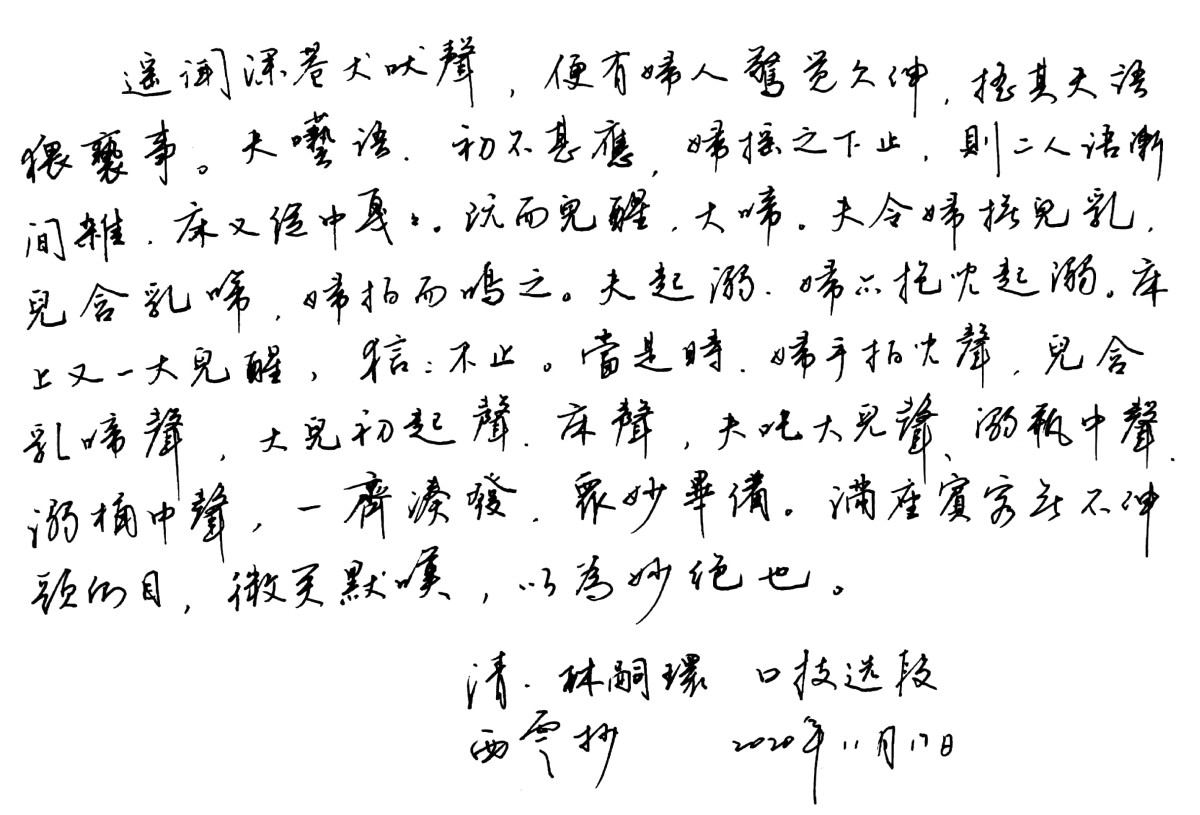 遥闻深巷犬吠聲，便有婦人驚觉欠伸，摇其夫语
猥褻事。夫囈语，初不甚應，婦摇之不止，則二人语漸
间雜，床又從中戛々。既而兒醒，大啼。夫令婦撫兒乳，
兒含乳啼，婦拍而鳴之。夫起溺，婦亦抱兒起溺。床
上又一大兒醒，狺：不止。當是時，婦手拍兒聲，兒含
乳啼聲，大兒初起聲，床聲，夫叱大兒聲、溺瓶中聲，
溺桶中聲，一齊湊發，眾妙畢備。滿座賓客无不伸
頸側目，微笑默嘆，以為妙绝也。
清．林嗣環 口技选段
西雲抄 2020年11月17日